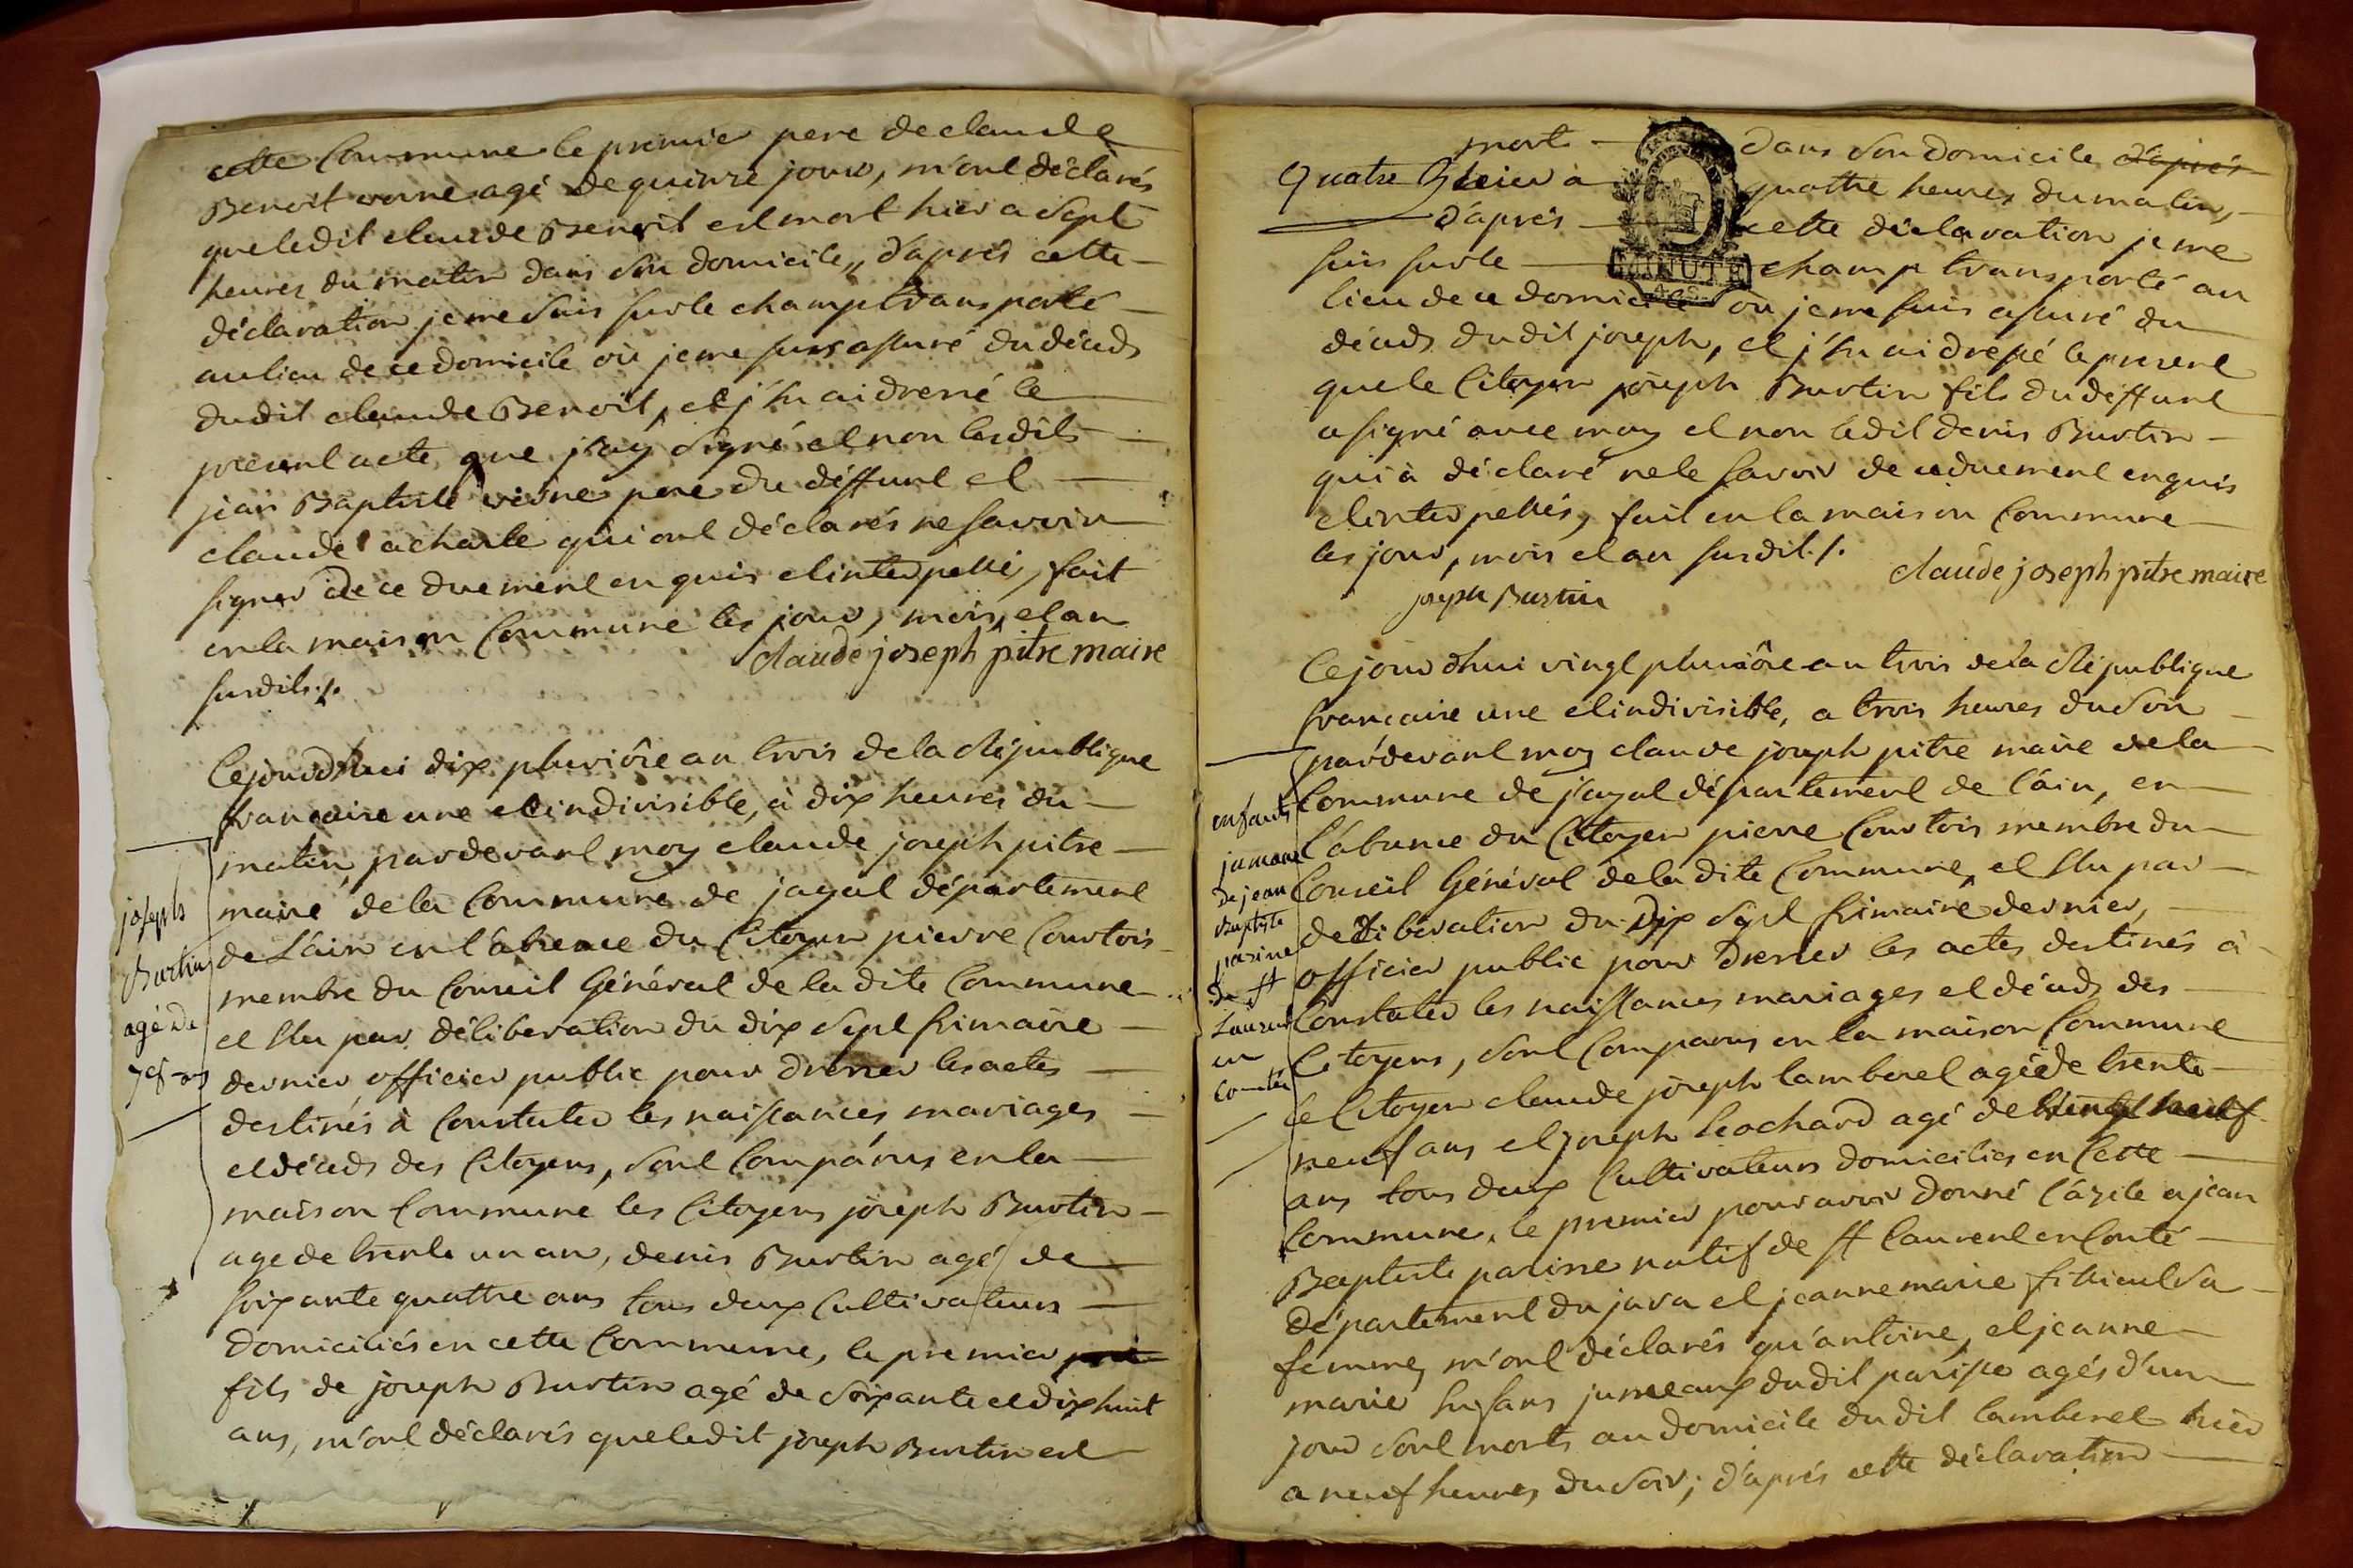 cette Commune le premier pere de claude
Benoit agé de quinze jours, m'ont déclarés
que ledit claude Benoit est mort hier a Sept
heures du matin dans Son domicile, d'après cette
déclaration je me Suis sur le champ transporté
au lieu de ce domicile où je me suis assuré du décèds
dudit claude Benoit, et j'en ai dressé le
present acte que j'ay Signé et non lesdits
jean Baptiste pere du déffunt et
claude qui ont déclarés ne savoir
signer de ce duement enquis et interpellés, fait
en la maison Commune les jour, mois, et an
susdits ./.
claude joseph pitre maire
Cejourdhui dix pluviôse an trois de la République
francaise une et indivisible, à dix heures du
matin, pardevant moy claude joseph pitre
maire de la Commune de jayat département
de L'ain en l'absence du Citoyen pierre Courtois
membre du Conseil Général de la dite Commune
et Elu par déliberation du dix Sept frimaire
dernier, officier public pour dresser les actes
destinés à Constater les naissances, mariages
et décèds des Citoyens, Sont Comparus en la
maison Commune les Citoyens joseph Burtin
age de trente un an, denis Burtin agé de
soixante quattre ans tous deux Cultivateurs
domiciliés en cette Commune, le premier
fils de joseph Burtin agé de Soixante et dix huit
ans, m'ont déclarés que ledit joseph Burtin est
joseph
Burtin
agé de
78 ans
mort dans Son domicile d'après
Quatre hier à quattre heures du matin,
d'après cette déclaration je me
suis sur le champ transporté au
MINUTE
lieu de ce domicile où je me suis assuré du
décèds du dit joseph, et j'En ai dressé le present
que le Citoyen joseph Burtin fils du deffunt
a signé avec moy et non ledit denis Burtin
qui à déclaré ne le savoir de ce duement enquis
et interpellés, fait en la maison Commune
les jour, mois et an susdit ./.
claude joseph pitre maire
joseph Burtin
Cejourdhui vingt pluviôse an trois de la République
francaise une et indivisible, a trois heures du Soir
pardevant moy claude joseph pitre maire de la
Commune de jayat département de l'ain, en
l'absence du Citoyen pierre Courtois membre du
Conseil Général de la dite Commune, et Elu par
deliberation du Dix Sept frimaire dernier,
officier public pour dresser les actes destinés à
Constater les naissances mariages et décèds des
Citoyens, Sont Comparus en la maison Commune
le Citoyen claude joseph lamberel agé de trente
neuf ans et joseph agé de
ans tous deux Cultivateurs domiciliés en Cette
Commune, le premier pour avoir donné l'azile a jean
Baptiste natif de St laurent en Conté
département du jura et jeanne marie Sa
femme, m'ont déclarés qu'antoine, et jeanne
marie Enfans jumeaux dudit agés d'un
jour Sont morts au domicile du dit lamberel hier
a neuf heures du Soir; d'après cette déclaration
enfants
jumeaux
de jean
Baptiste
de St
Laurent
en